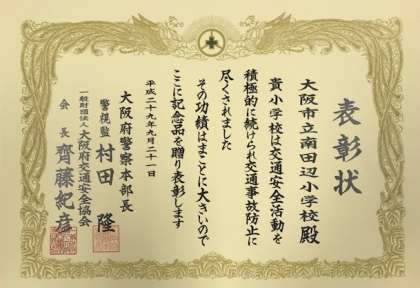 表彰状
大阪市立南田辺小学校 殿
貴小学校は交通安全活動を
積極的に続けられ交通事故防止に
尽くされました
その功績はまことに大きいので
ここに記念品を贈り表彰します
平成二十九年九月二十一日
大阪府警察本部長
警視監 村田 隆
一般財団法人 大阪府交通安全協会
会長 齊藤紀彦